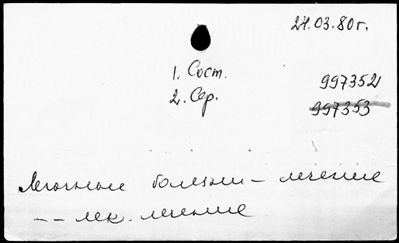 24.03.80г.
1. Сост.
2. Сер.
997352
997353
Легочные болезни - лечение
-- лек. лечение